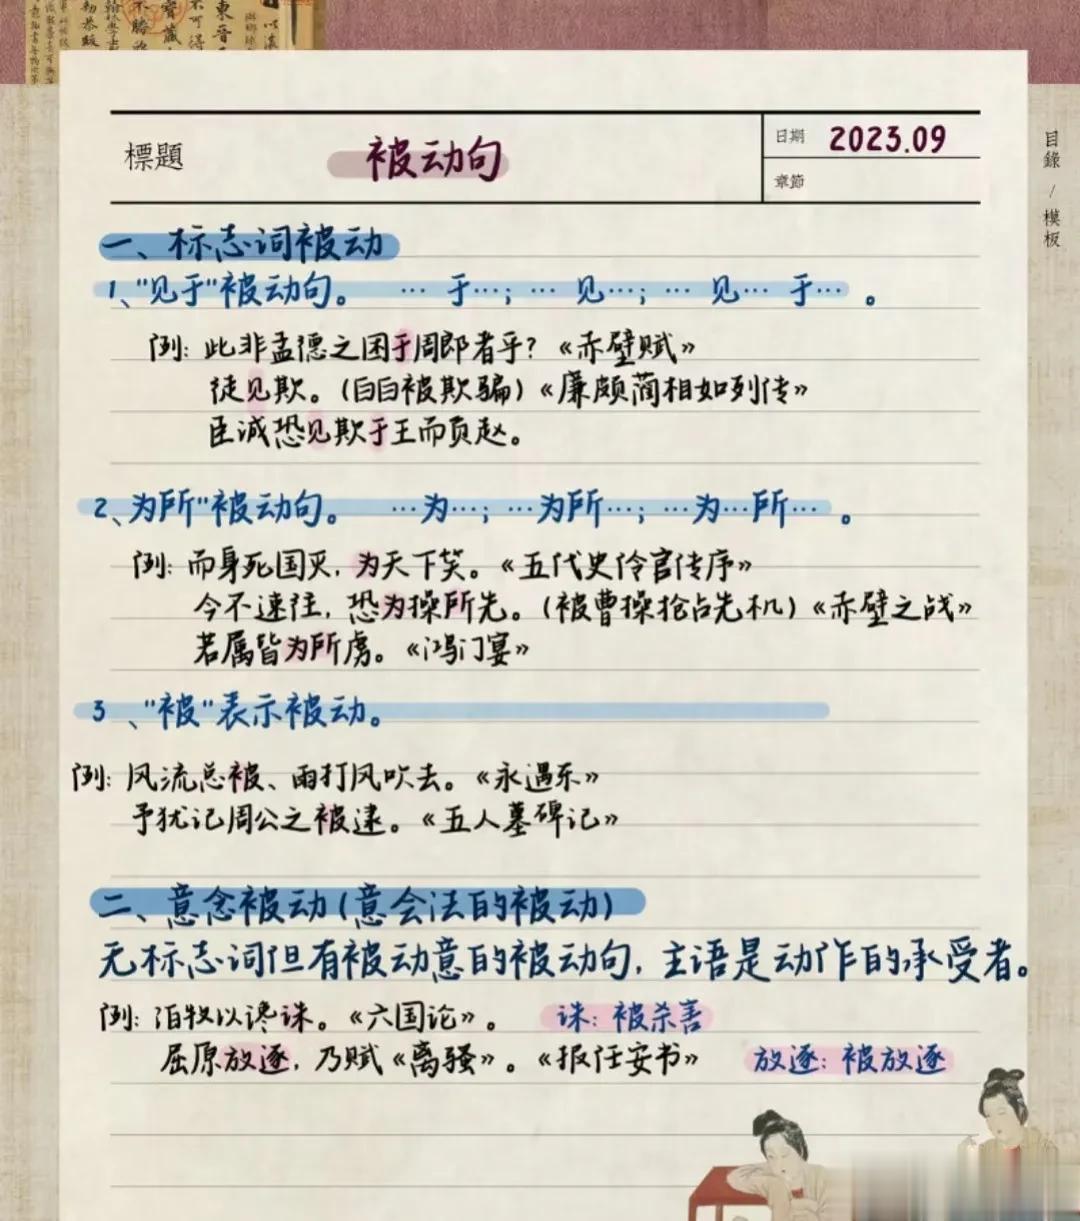 標題
被动句
日期 2023.09
章節
目錄 / 模板
一、标志词被动
1、"见于"被动句。 … 于…; … 见…; … 见… 于… 。
例: 此非孟德之困于周郎者乎? 《赤壁赋》
徒见欺。(白白被欺骗)《廉颇蔺相如列传》
臣诚恐见欺于王而负赵。
2、为所"被动句。 …为…; …为所…; …为…所… 。
例: 而身死国灭, 为天下笑。《五代史伶官传序》
今不速往, 恐为操所先。(被曹操抢占先机)《赤壁之战》
若属皆为所虏。《鸿门宴》
3、"被"表示被动。
例: 风流总被、雨打风吹去。《永遇乐》
予犹记周公之被逮。《五人墓碑记》
二、意念被动(意会法的被动)
无标志词但有被动意的被动句, 主语是动作的承受者。
例: 洎牧以谗诛。《六国论》。 诛: 被杀害
屈原放逐, 乃赋《离骚》。《报任安书》 放逐: 被放逐